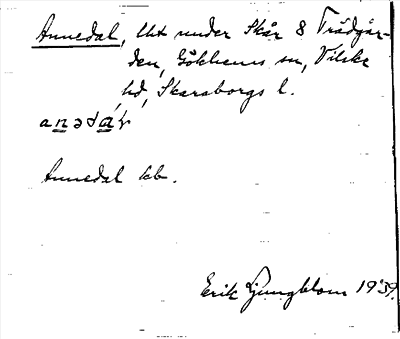 Annedal, lht under Skår 8 Trädgår-
den, Gökhems sn, Vilske
hd, Skaraborgs l.
Annedal kb.
Erik Ljungblom 1939.